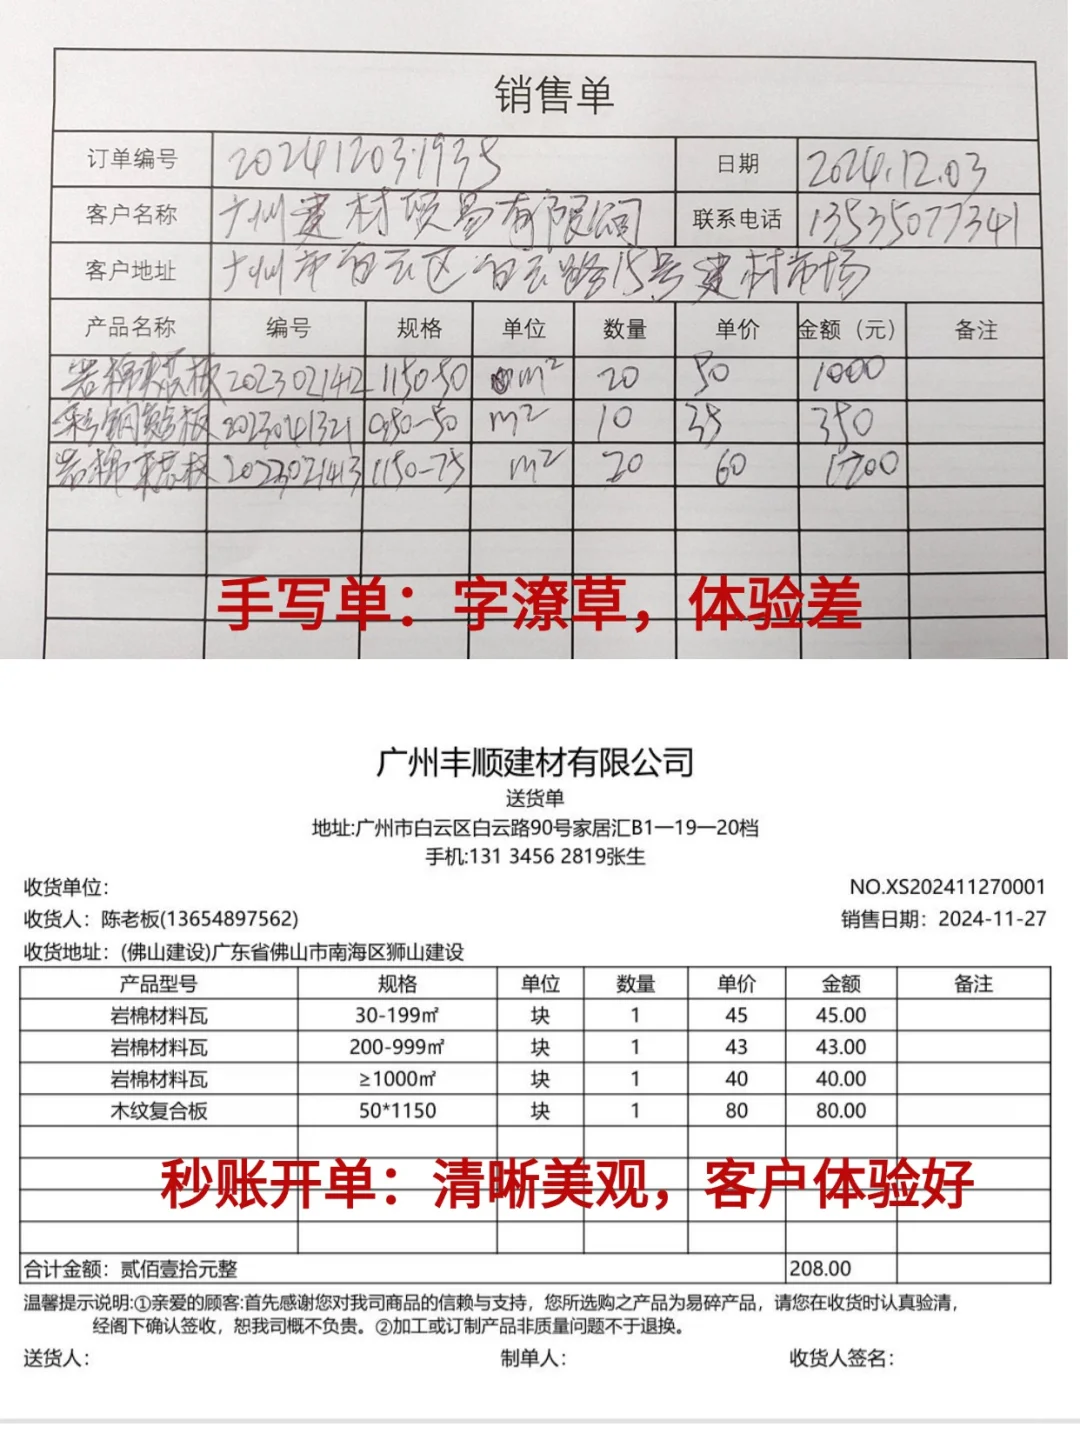 销售单
订单编号 20241203.1935 日期 2024.12.03
客户名称 广州建材贸易有限公司 联系电话 13535077341
客户地址 广州市白云区白云路15号建材市场
产品名称 编号 规格 单位 数量 单价 金额（元） 备注
岩棉 板 2023021412 1150-50 m² 20 50 1000
彩钢 板 2023041321 950-50 m² 10 35 350
岩棉 板 2022021413 1150-75 m² 20 60 1200
手写单：字潦草，体验差
广州丰顺建材有限公司
送货单
地址:广州市白云区白云路90号家居汇B1一19一20档
手机:131 3456 2819张生
收货单位： NO.XS202411270001
收货人：陈老板(13654897562) 销售日期：2024-11-27
收货地址：(佛山建设)广东省佛山市南海区狮山建设
产品型号 规格 单位 数量 单价 金额 备注
岩棉材料瓦 30-199㎡ 块 1 45 45.00
岩棉材料瓦 200-999㎡ 块 1 43 43.00
岩棉材料瓦 ≥1000㎡ 块 1 40 40.00
木纹复合板 50*1150 块 1 80 80.00
秒账开单：清晰美观，客户体验好
合计金额：贰佰壹拾元整 208.00
温馨提示说明:①亲爱的顾客:首先感谢您对我司商品的信赖与支持，您所选购之产品为易碎产品，请您在收货时认真验清，
经阁下确认签收，恕我司概不负责。②加工或订制产品非质量问题不于退换。
送货人： 制单人： 收货人签名：